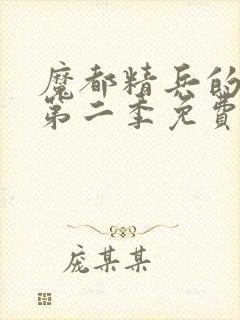 魔都精兵的
第二季免費
庞某某